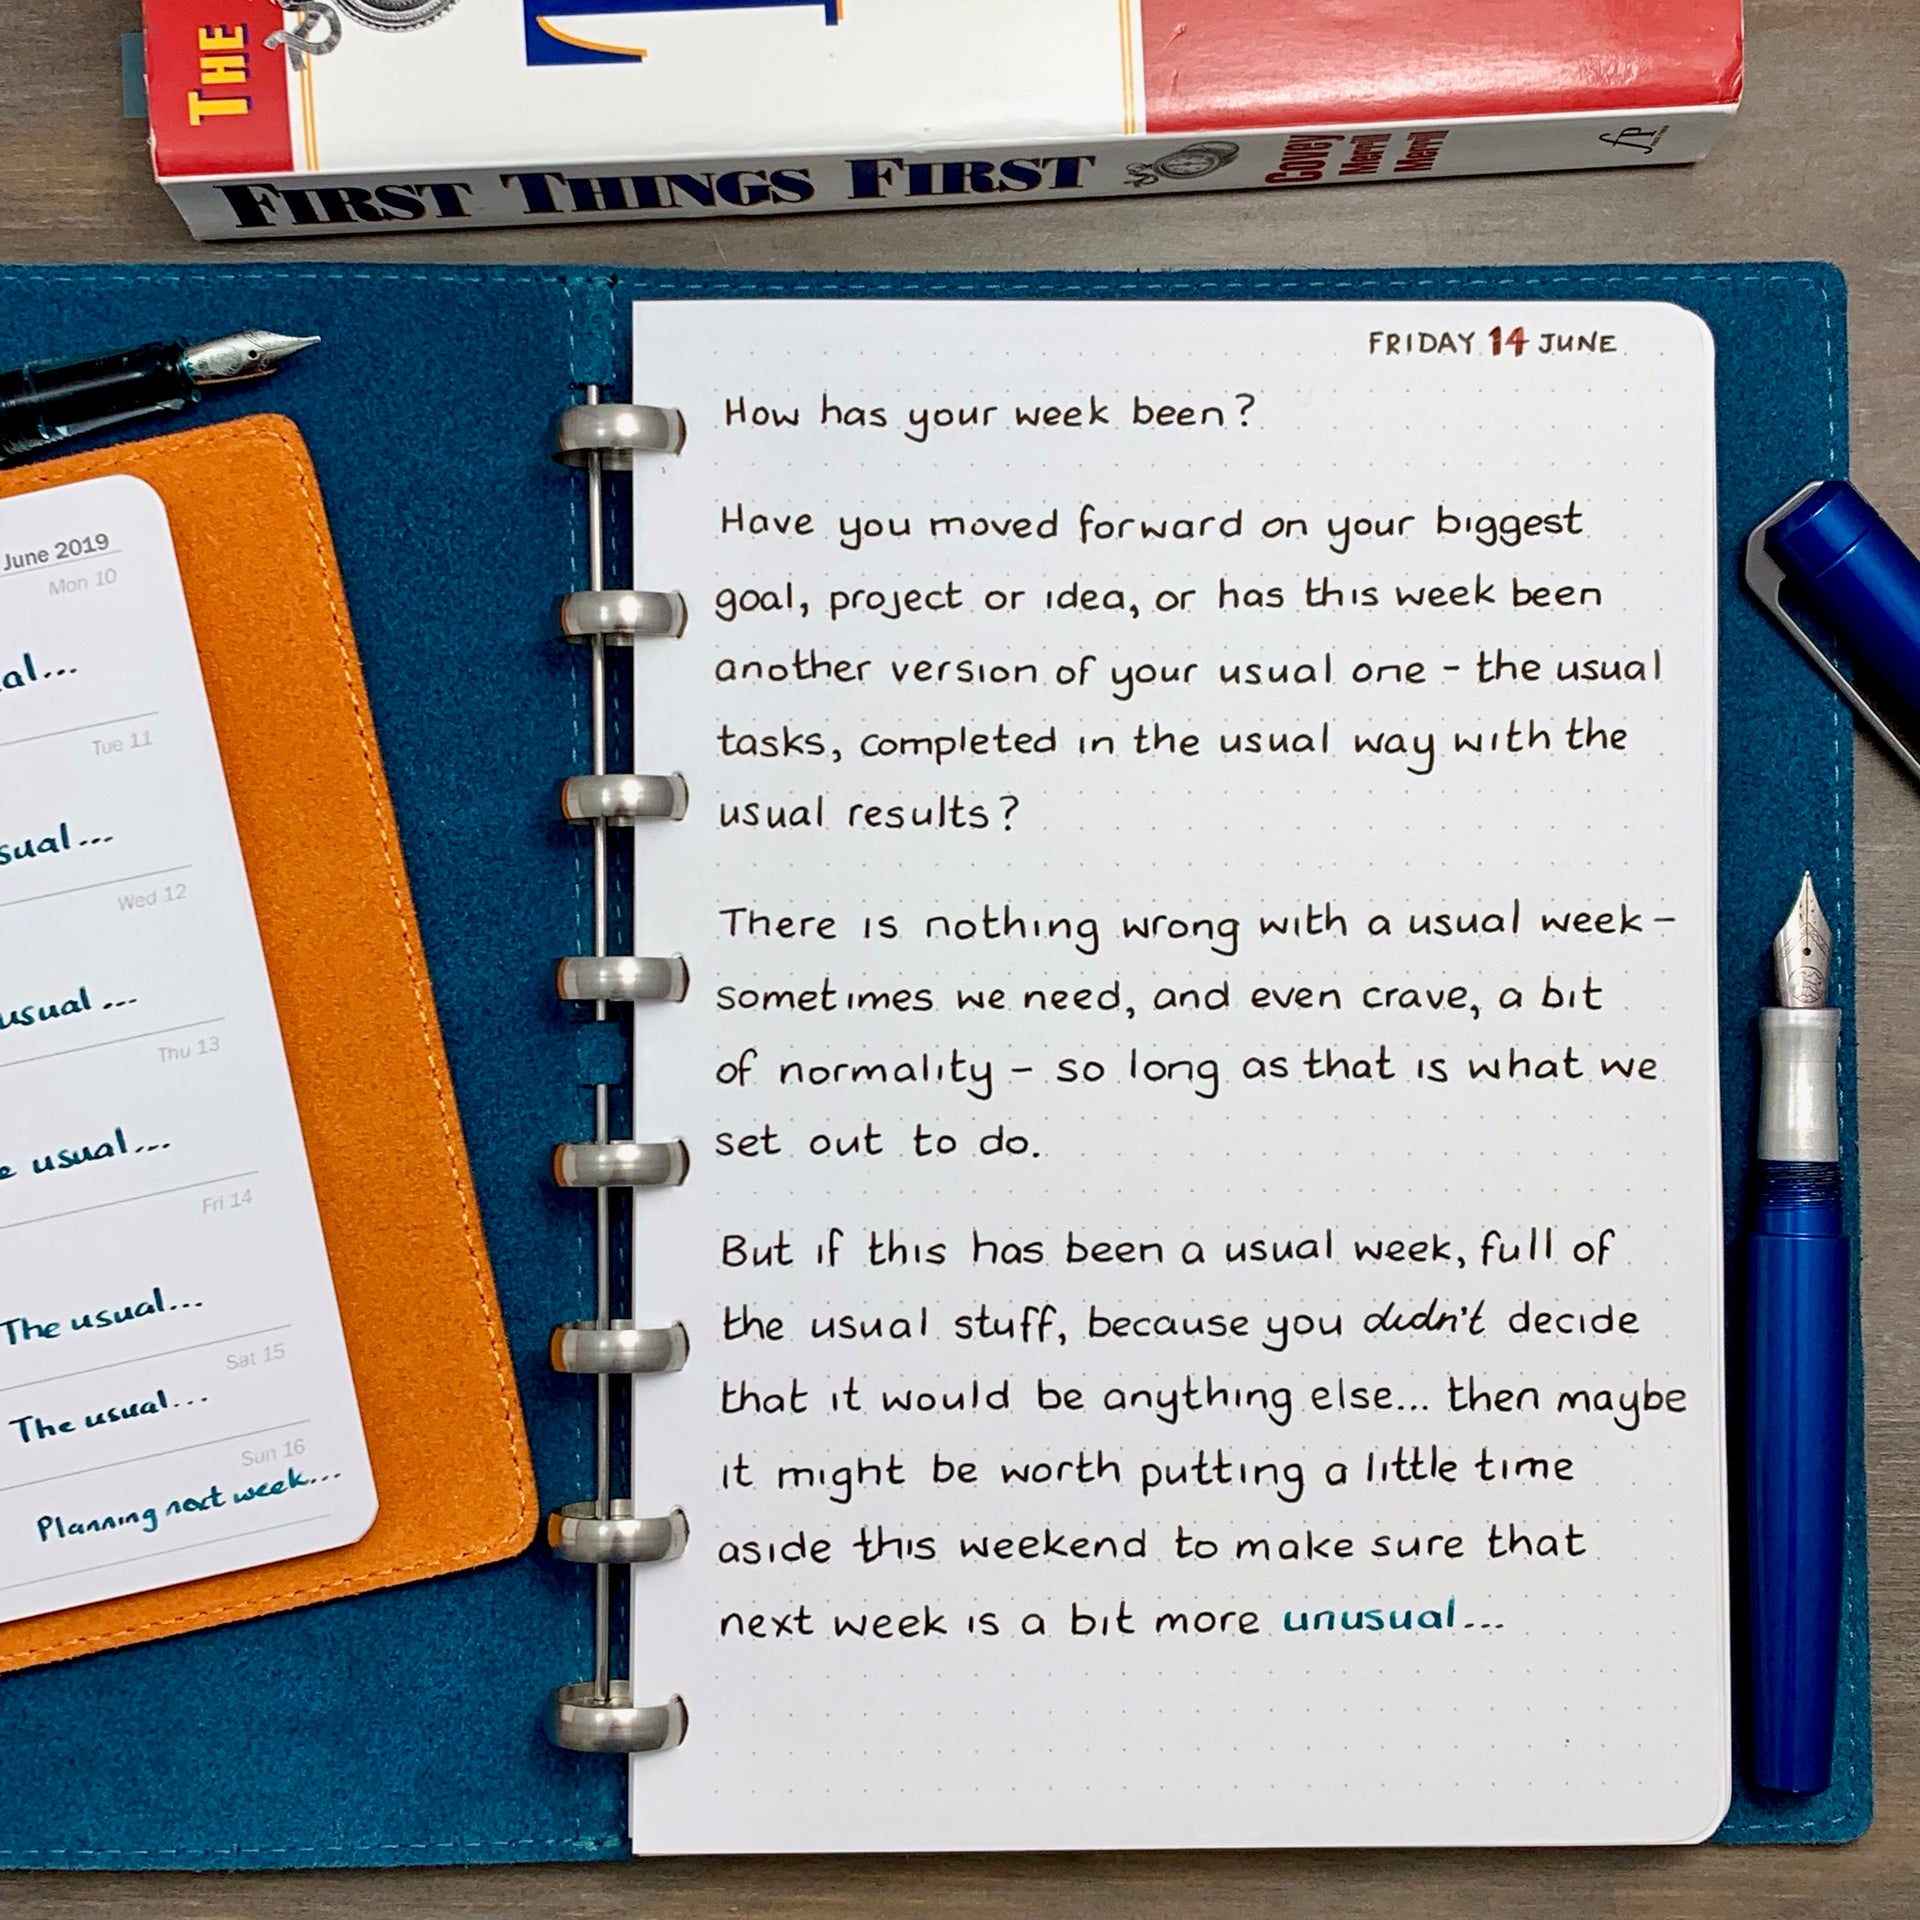 THE
FIRST THINGS FIRST
Covey
Merrill
Merrill
fp
June 2019
Mon 10
Tue 11
Wed 12
usual...
Thu 13
usual...
Fri 14
The usual...
Sat 15
The usual...
Sun 16
Planning next week...
FRIDAY 14 JUNE
How has your week been?
Have you moved forward on your biggest
goal, project or idea, or has this week been
another version of your usual one - the usual
tasks, completed in the usual way with the
usual results?
There is nothing wrong with a usual week -
sometimes we need, and even crave, a bit
of normality - so long as that is what we
set out to do.
But if this has been a usual week, full of
the usual stuff, because you didn't decide
that it would be anything else... then maybe
it might be worth putting a little time
aside this weekend to make sure that
next week is a bit more unusual...